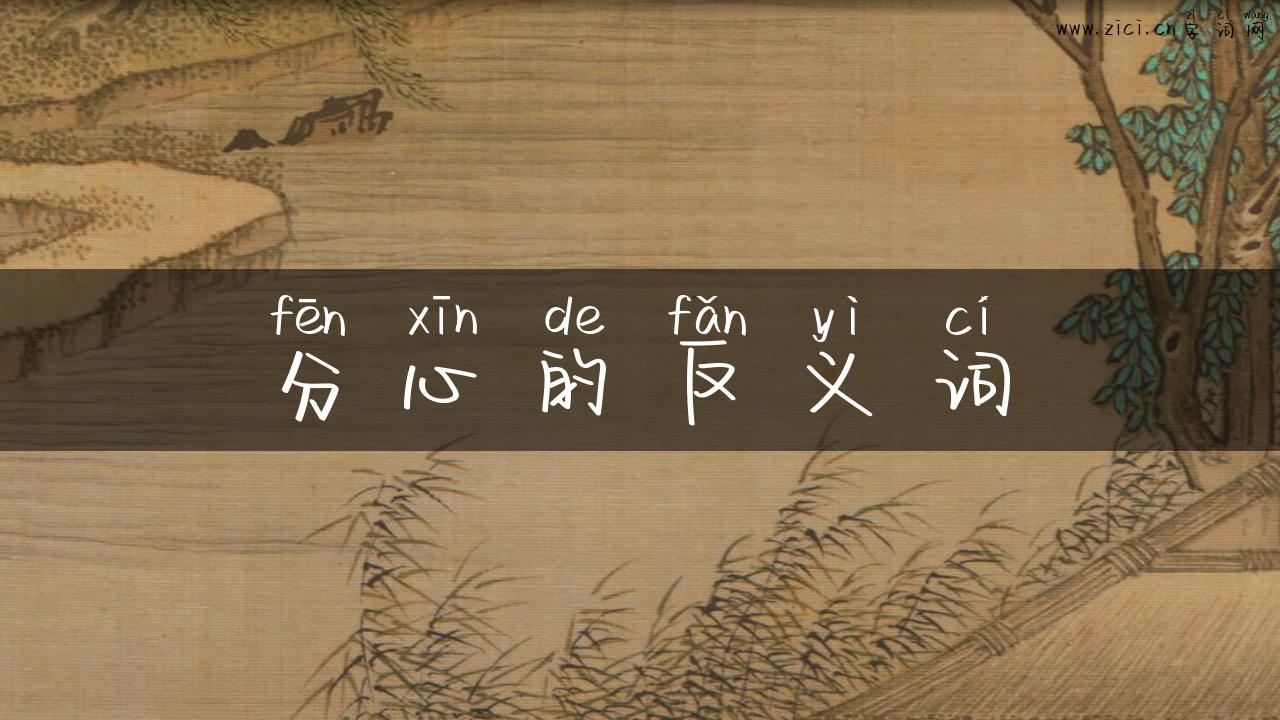 zì cí wǎng
www.zici.cn字词网
fēn xīn de fǎn yì cí
分心的反义词